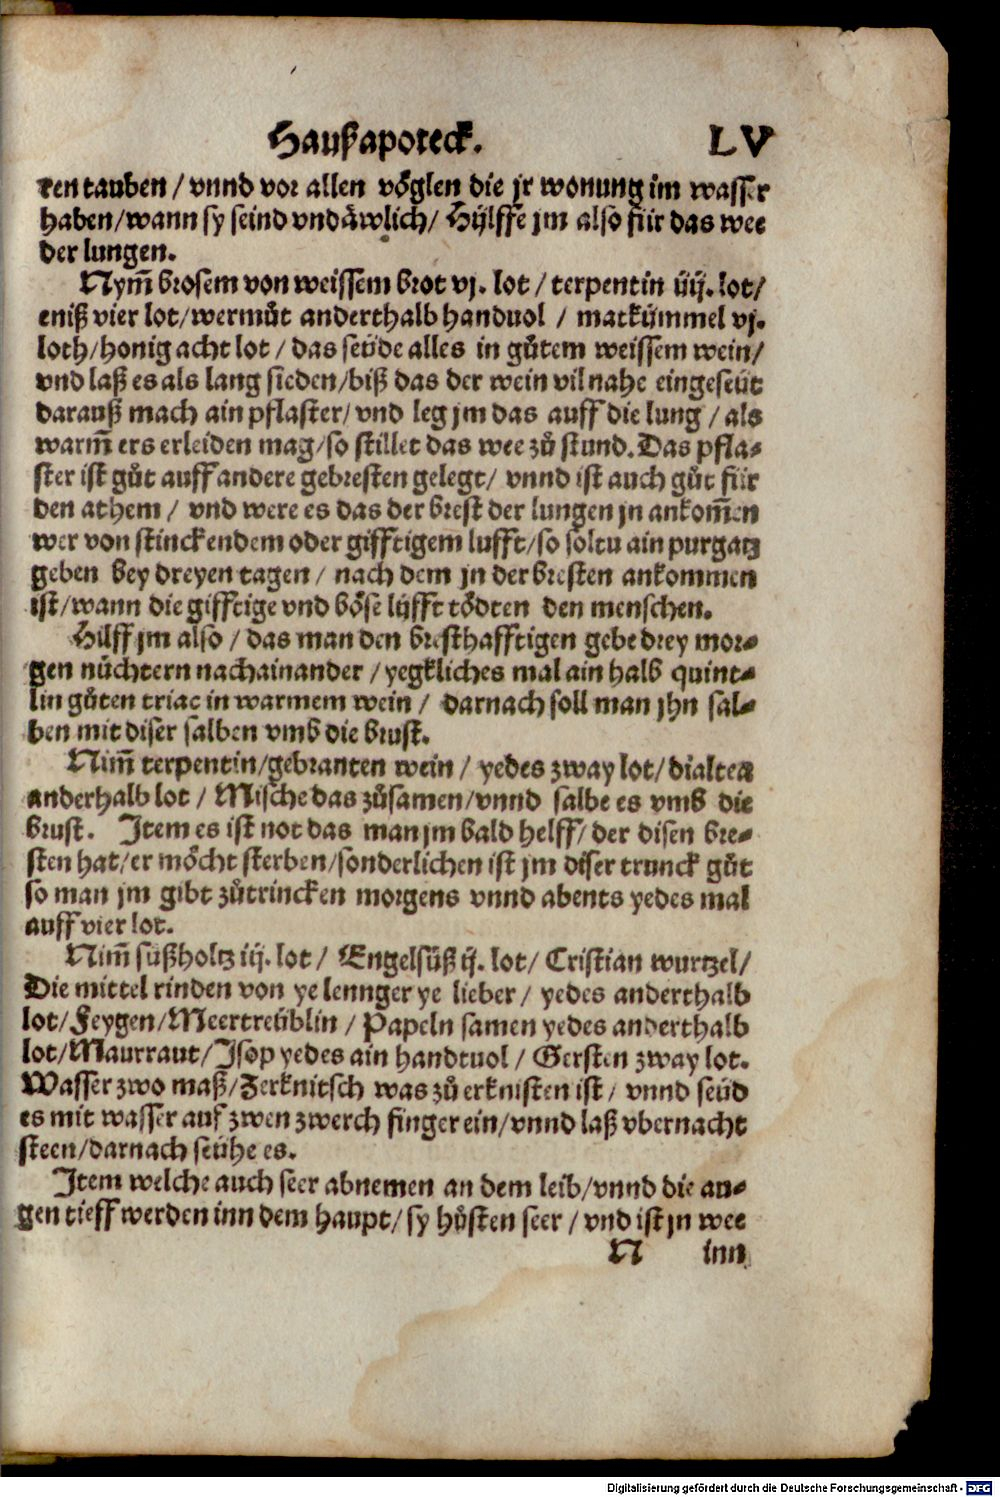 Haußapoteck. LV
ren tauben / vnnd vor allen vöglen die jr wonung im wasser
haben/wann sy seind vndäwlich/ Hülffe jm also für das wee
der lungen.
Nym̃ brosem von weissem brot vj. lot / terpentin iij. lot/
eniß vier lot/wermůt anderthalb handuol / matkümmel vj.
loth/honig acht lot / das seüde alles in gůtem weissem wein/
vnd laß es als lang sieden/biß das der wein vil nahe eingeseüt
darauß mach ain pflaster/ vnd leg jm das auff die lung / als
warm̃ ers erleiden mag/so stillet das wee zů stund. Das pfla-
ster ist gůt auff andere gebresten gelegt/ vnnd ist auch gůt für
den athem / vnd were es das der brest der lungen jn ankom̃en
wer von stinckendem oder gifftigem lufft/so soltu ain purgatz
geben bey dreyen tagen / nach dem jn der bresten ankommen
ist/wann die gifftige vnd böse lüfft tödten den menschen.
Hilff jm also / das man den bresthafftigen gebe drey mor-
gen nüchtern nachainander / yegkliches mal ain halb quint-
lin gůten triac in warmem wein / darnach soll man jhn sal-
ben mit diser salben vmb die brust.
Nim̃ terpentin/gebranten wein / yedes zway lot/ dialtea
anderhalb lot / Mische das zůsamen/vnnd salbe es vmb die
brust. Item es ist not das man jm bald helff/ der disen bre-
sten hat/er möcht sterben/sonderlichen ist jm diser trunck gůt
so man jm gibt zůtrincken morgens vnnd abents yedes mal
auff vier lot.
Nim̃ süßholtz iij. lot / Engelsüß ij. lot/ Cristian wurtzel/
Die mittel rinden von ye lennger ye lieber / yedes anderthalb
lot/Feygen/Meertreüblin / Papeln samen yedes anderthalb
lot/Maurraut/Isop yedes ain handtuol / Gersten zway lot.
Wasser zwo maß/Zerknitsch was zů erknisten ist / vnnd seüd
es mit wasser auf zwen zwerch finger ein/vnnd laß vbernacht
steen/darnach seühe es.
Item welche auch seer abnemen an dem leib/vnnd die au-
gen tieff werden inn dem haupt/ sy hůsten seer / vnd ist jn wee
N inn
Digitalisierung gefördert durch die Deutsche Forschungsgemeinschaft - DFG